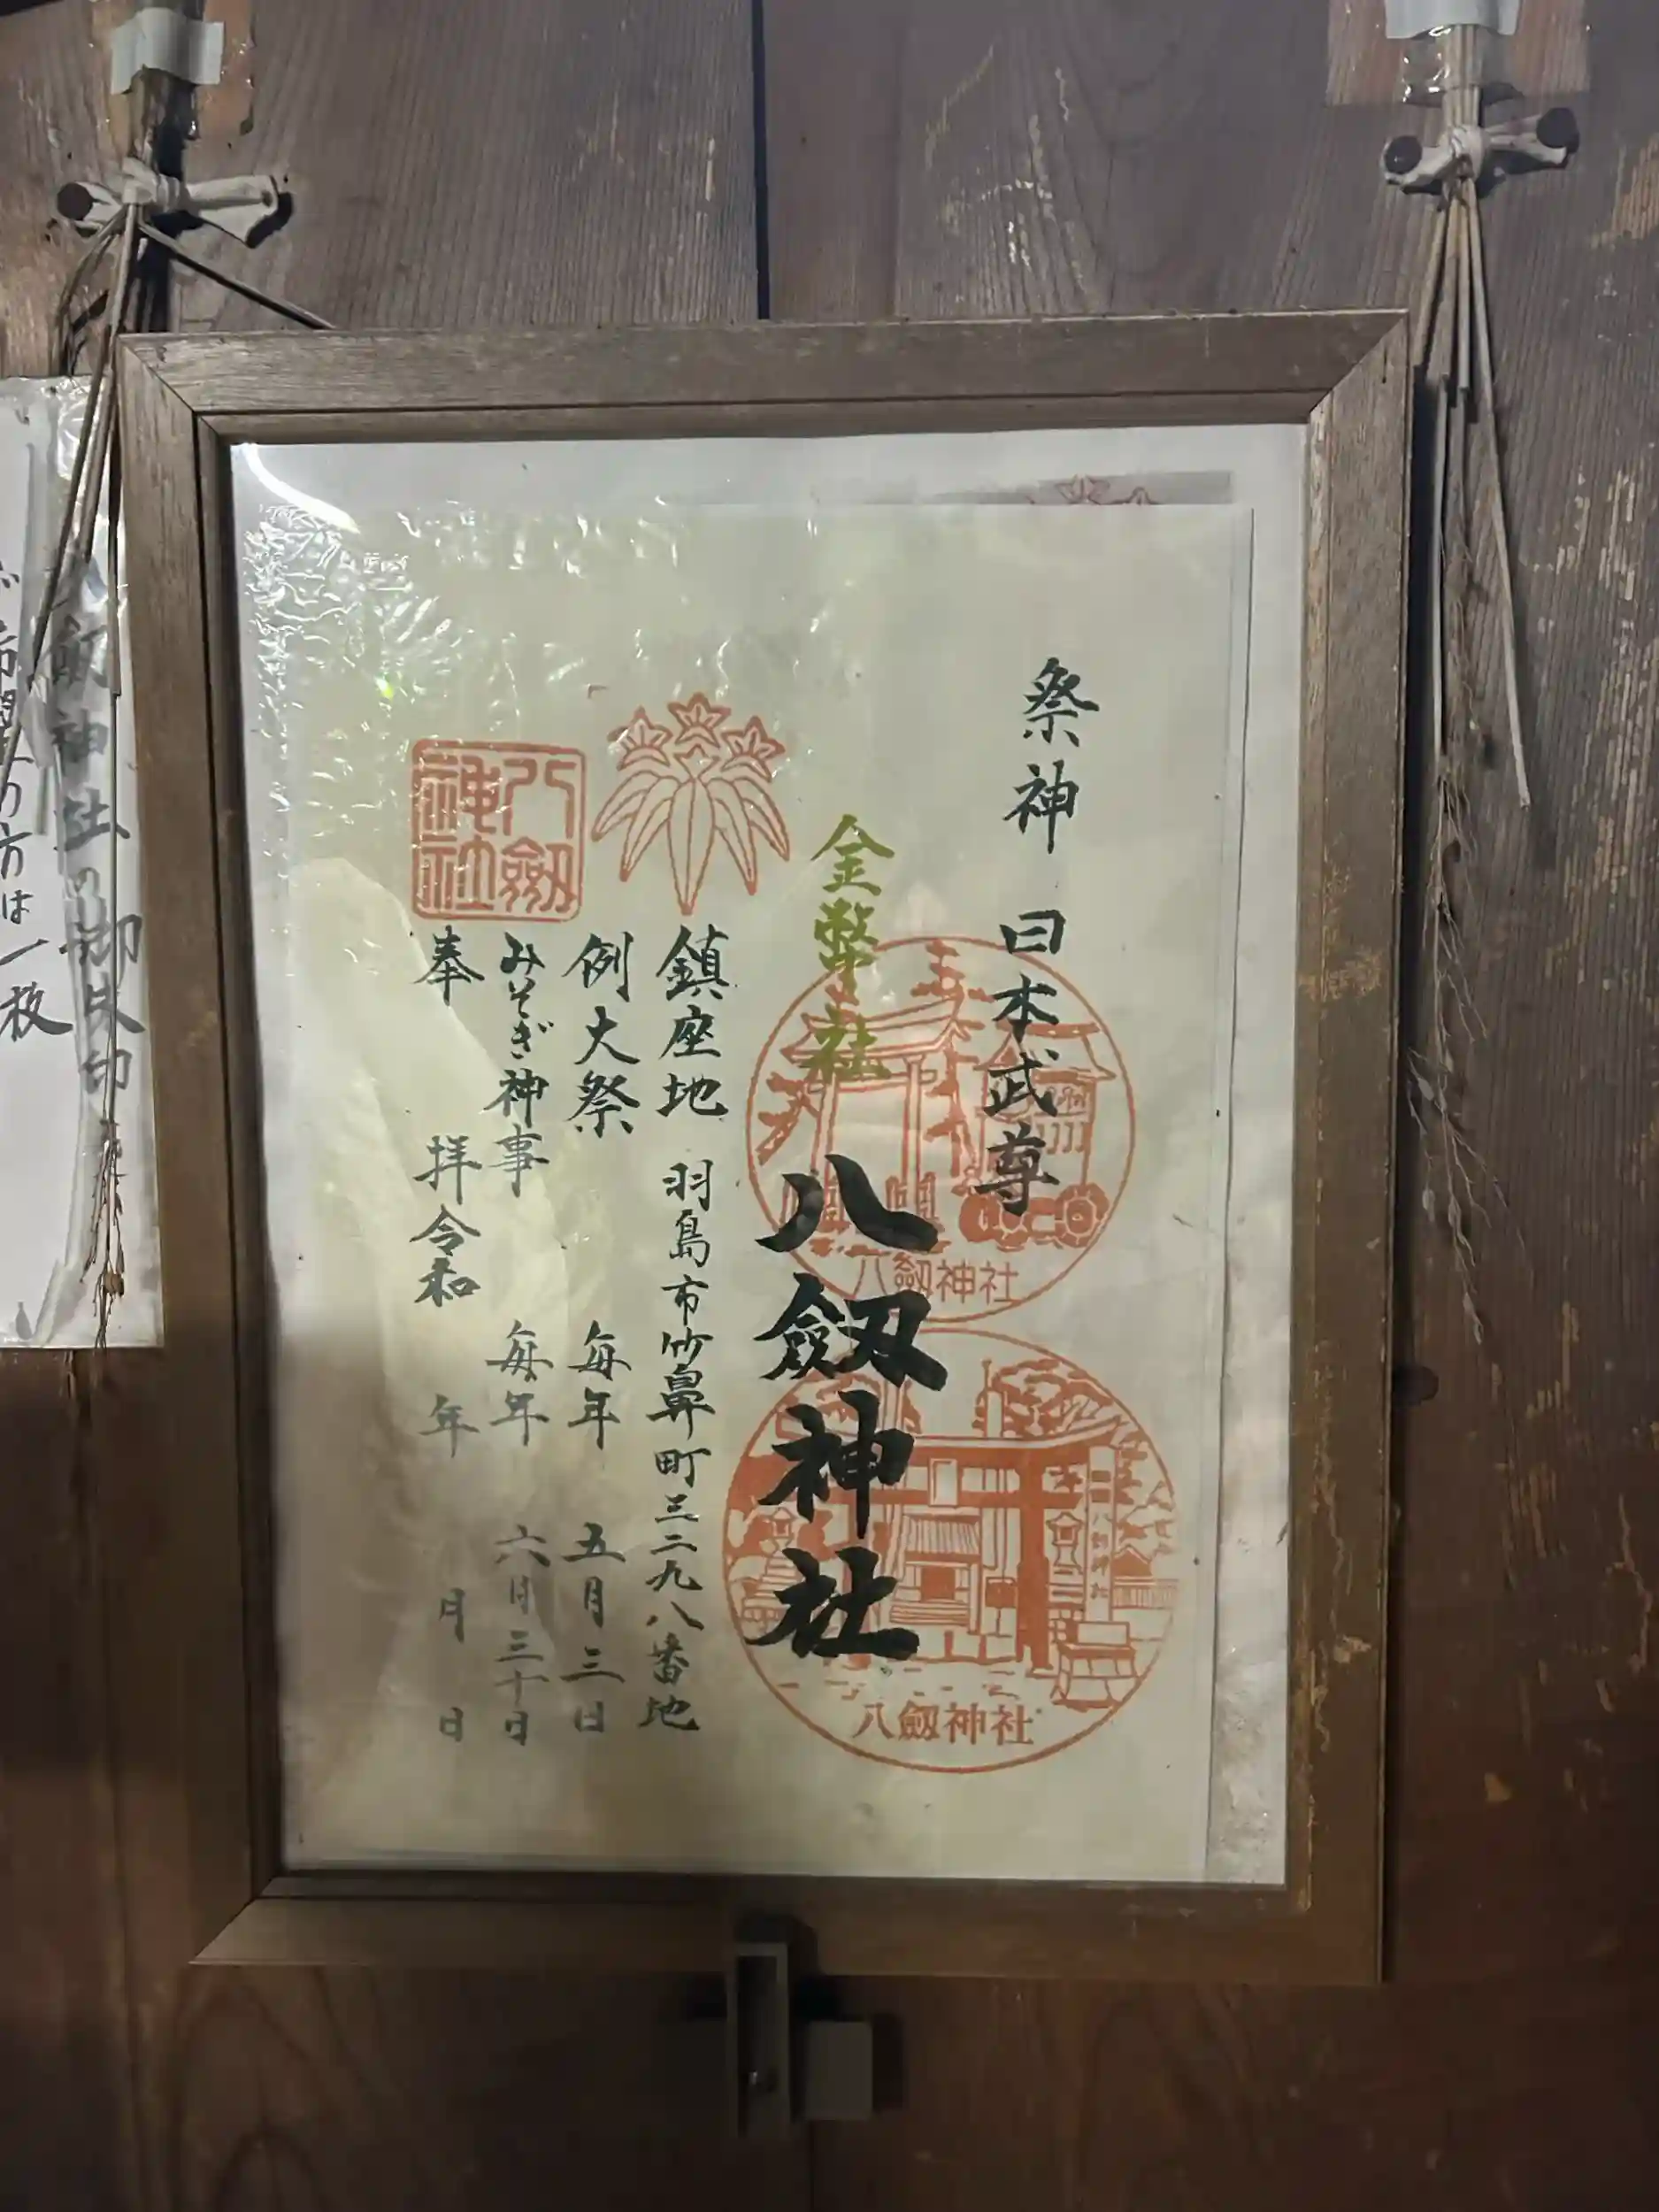 祭神 日本武尊
金幣社
八劔神社
鎮座地 羽島市竹鼻町三二九八番地
例大祭 毎年 五月三日
みそぎ神事 毎年 六月三十日
奉 拝 令和 年 月 日
八劔神社
八劔神社
八劔神社
劔神社の御朱印
方は一枚